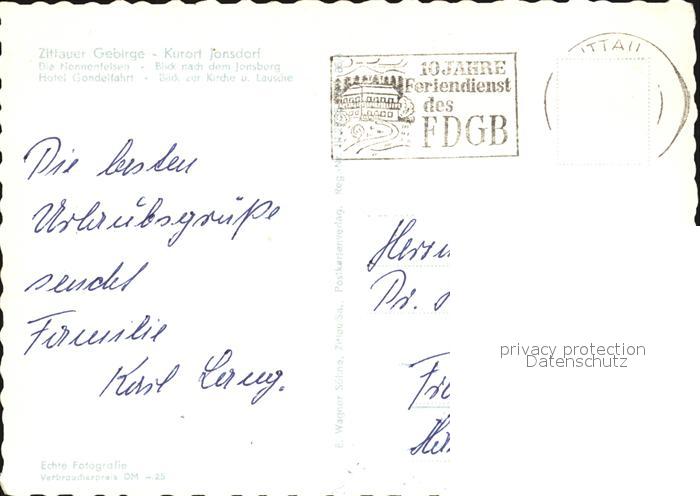 Zittauer Gebirge - Kurort Jonsdorf
Die Nonnenfelsen - Blick nach dem Jonsberg
Hotel Gondelfahrt - Blick zur Kirche u. Lausche
10 JAHRE
Feriendienst
des
FDGB
ITTAU
Die besten
Urlaubsgrüße
sendet
Familie
Karl Lang.
E. Wagner Söhne, Zittau/Sa., Postkartenverlag,
Herrn
Dr.
privacy protection
Datenschutz
Echte Fotografie
Verbraucherpreis DM -.25